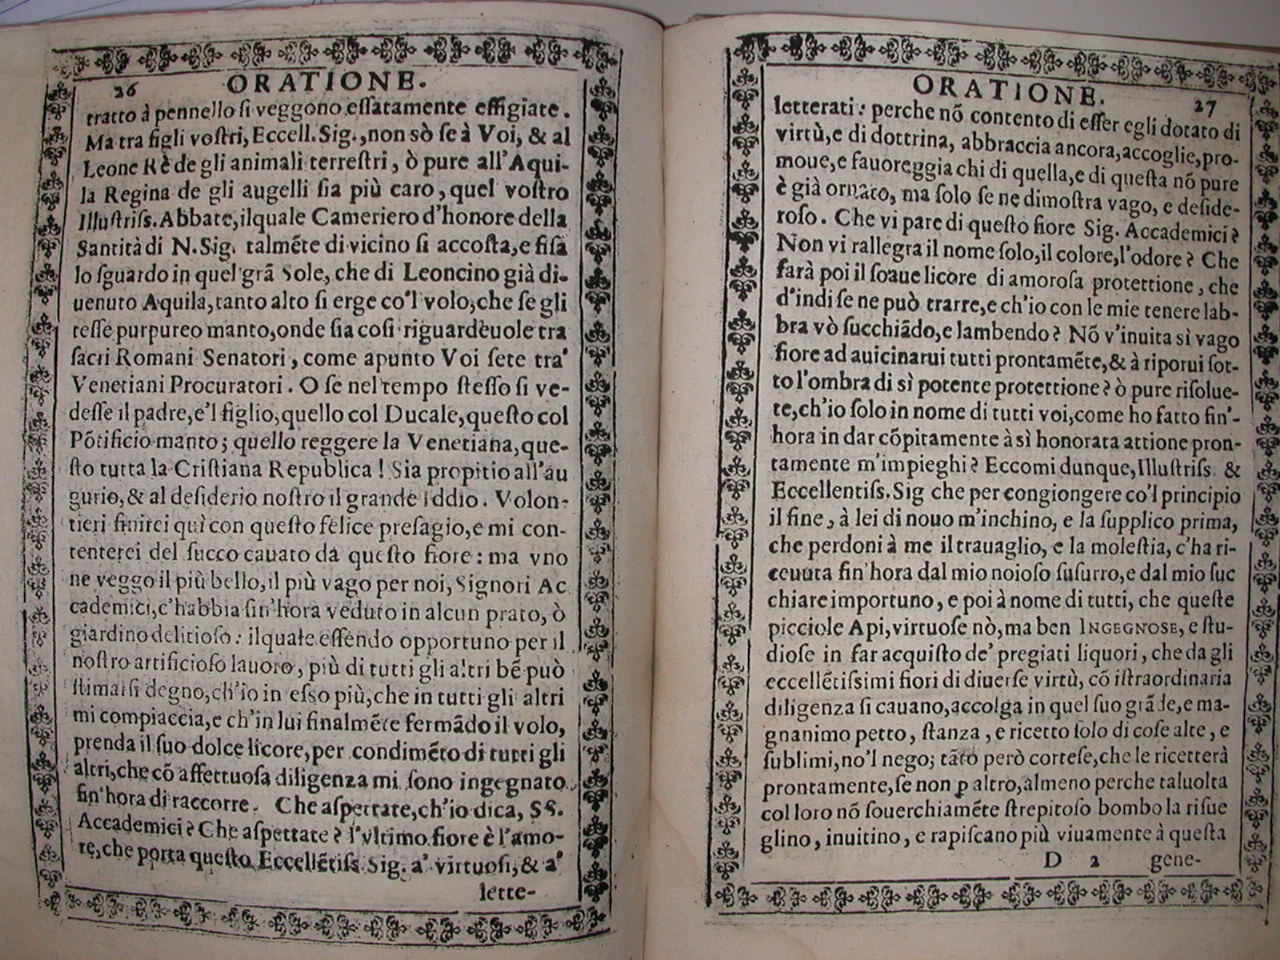 26 ORATIONE.
tratto à pennello ſi veggono eſſatamente effigiate.
Ma tra figli voſtri, Eccell. Sig., non sò ſe à Voi, & al
Leone Rè de gli animali terreſtri, ò pure all'Aqui-
la Regina de gli augelli ſia più caro, quel voſtro
Illuſtriſs. Abbate, ilquale Cameriero d'honore della
Santità di N. Sig. talmẽte di vicino ſi accoſta, e fiſa
lo ſguardo in quel grã Sole, che di Leoncino già di-
uenuto Aquila, tanto alto ſi erge co'l volo, che ſe gli
teſſe purpureo manto, onde ſia coſi riguardèuole tra
ſacri Romani Senatori, come apunto Voi ſete tra'
Venetiani Procuratori. O ſe nel tempo ſteſſo ſi ve-
deſſe il padre, e'l figlio, quello col Ducale, queſto col
Põtificio manto; quello reggere la Venetiana, que-
ſto tutta la Criſtiana Republica! Sia propitio all'au
gurio, & al deſiderio noſtro il grande Iddio. Volon-
tieri finirei quì con queſto felice preſagio, e mi con-
tenterei del ſucco cauato da queſto fiore: ma vno
ne veggo il più bello, il più vago per noi, Signori Ac
cademici, c'habbia ſin'hora veduto in alcun prato, ò
giardino delitioſo: ilquale eſſendo opportuno per il
noſtro artificioſo lauoro, più di tutti gli altri bẽ può
ſtimarſi degno, ch'io in eſſo più, che in tutti gli altri
mi compiaccia, e ch'in lui finalmẽte fermãdo il volo,
prenda il ſuo dolce licore, per condimẽto di tutti gli
altri, che cõ affettuoſa diligenza mi ſono ingegnato
fin'hora di raccorre. Che aſpettate, ch'io dica, SS.
Accademici? Che aſpettate? l'vltimo fiore è l'amo-
re, che porta queſto Eccellẽtiſs. Sig. a' virtuoſi, & a'
lette-
ORATIONE. 27
letterati: perche nõ contento di eſſer egli dotato di
virtù, e di dottrina, abbraccia ancora, accoglie, pro-
moue, e fauoreggia chi di quella, e di queſta nõ pure
è già ornato, ma ſolo ſe ne dimoſtra vago, e deſide-
roſo. Che vi pare di queſto fiore Sig. Accademici?
Non vi rallegra il nome ſolo, il colore, l'odore? Che
farà poi il ſoaue licore di amoroſa protettione, che
d'indi ſe ne può trarre, e ch'io con le mie tenere lab-
bra vò ſucchiãdo, e lambendo? Nõ v'inuita sì vago
fiore ad auicinarui tutti prontamẽte, & à riporui ſot-
to l'ombra di sì potente protettione? ò pure riſolue-
te, ch'io ſolo in nome di tutti voi, come ho fatto fin'-
hora in dar cõpitamente à sì honorata attione pron-
tamente m'impieghi? Eccomi dunque, Illuſtriſs. &
Eccellentiſs. Sig che per congiongere co'l principio
il fine, à lei di nouo m'inchino, e la ſupplico prima,
che perdoni à me il trauaglio, e la moleſtia, c'ha ri-
ceuuta fin'hora dal mio noioſo ſuſurro, e dal mio ſuc
chiare importuno, e poi à nome di tutti, che queſte
picciole Api, virtuoſe nò, ma ben INGEGNOSE, e ſtu-
dioſe in far acquiſto de' pregiati liquori, che da gli
eccellẽtiſsimi fiori di diuerſe virtù, cõ iſtraordinaria
diligenza ſi cauano, accolga in quel ſuo grãde, e ma-
gnanimo petto, ſtanza, e ricetto ſolo di coſe alte, e
ſublimi, no'l nego; tãto però corteſe, che le ricetterà
prontamente, ſe non ꝑ altro, almeno perche taluolta
col loro nõ ſouerchiamẽte ſtrepitoſo bombo la riſue
glino, inuitino, e rapiſcano più viuamente à queſta
D 2 gene-